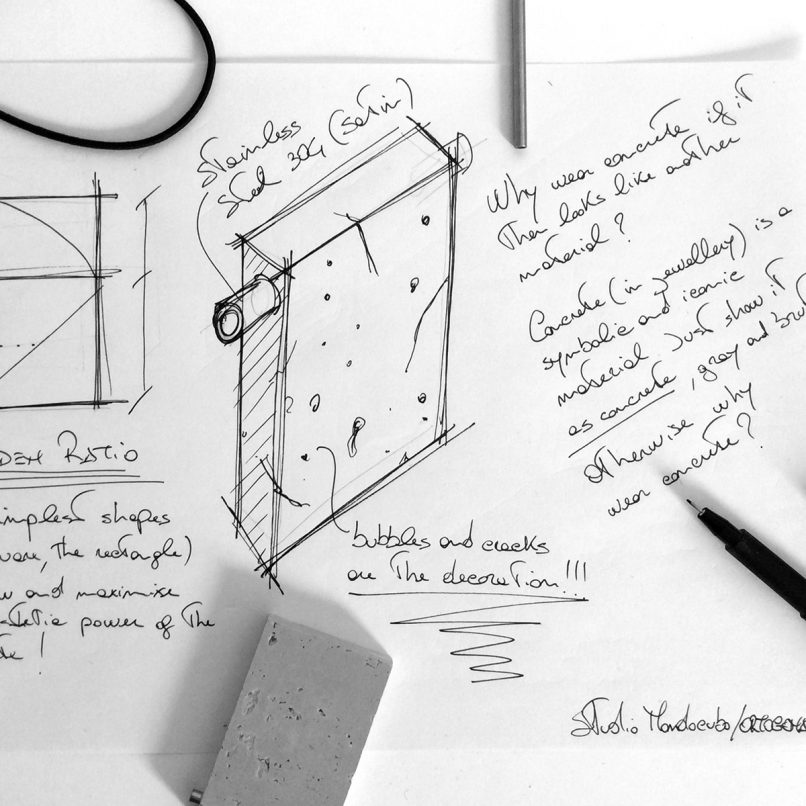 Stainless
Steel 304 (satin)
Why wear concrete if it
then looks like another
material?
Concrete (in jewellery) is a
symbolic and iconic
material. Just show it
as concrete, gray and
otherwise why
wear concrete?
bubbles and cracks
are the decoration!!!
DEN RATIO
implest shapes
uare, the rectangle)
w and maximise
power of the
Studio Mondocubo/